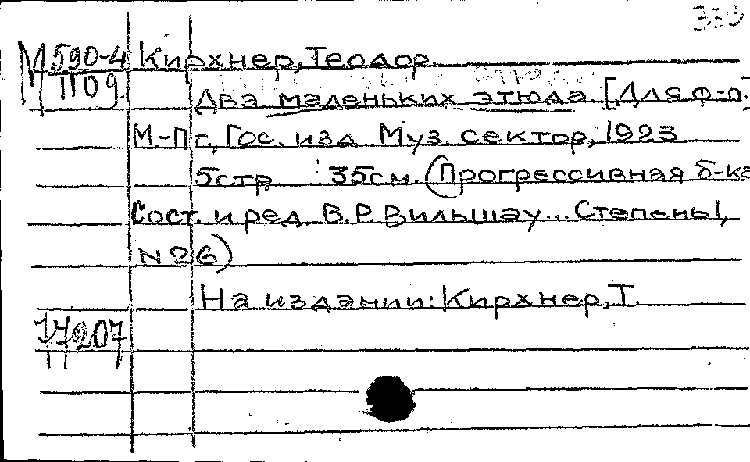 М 590-4 Кирхнер, Теодор.
1109
Два маленьких этюда. [Для ф-п.
М-Пг, Гос. изд. Муз. сектор, 1923
5стр. 35см. (Прогрессивная б-ка
Сост. и ред. В.Р. Вильшау... Степень I,
N 26)
На издании: Кирхнер, Т.
17207